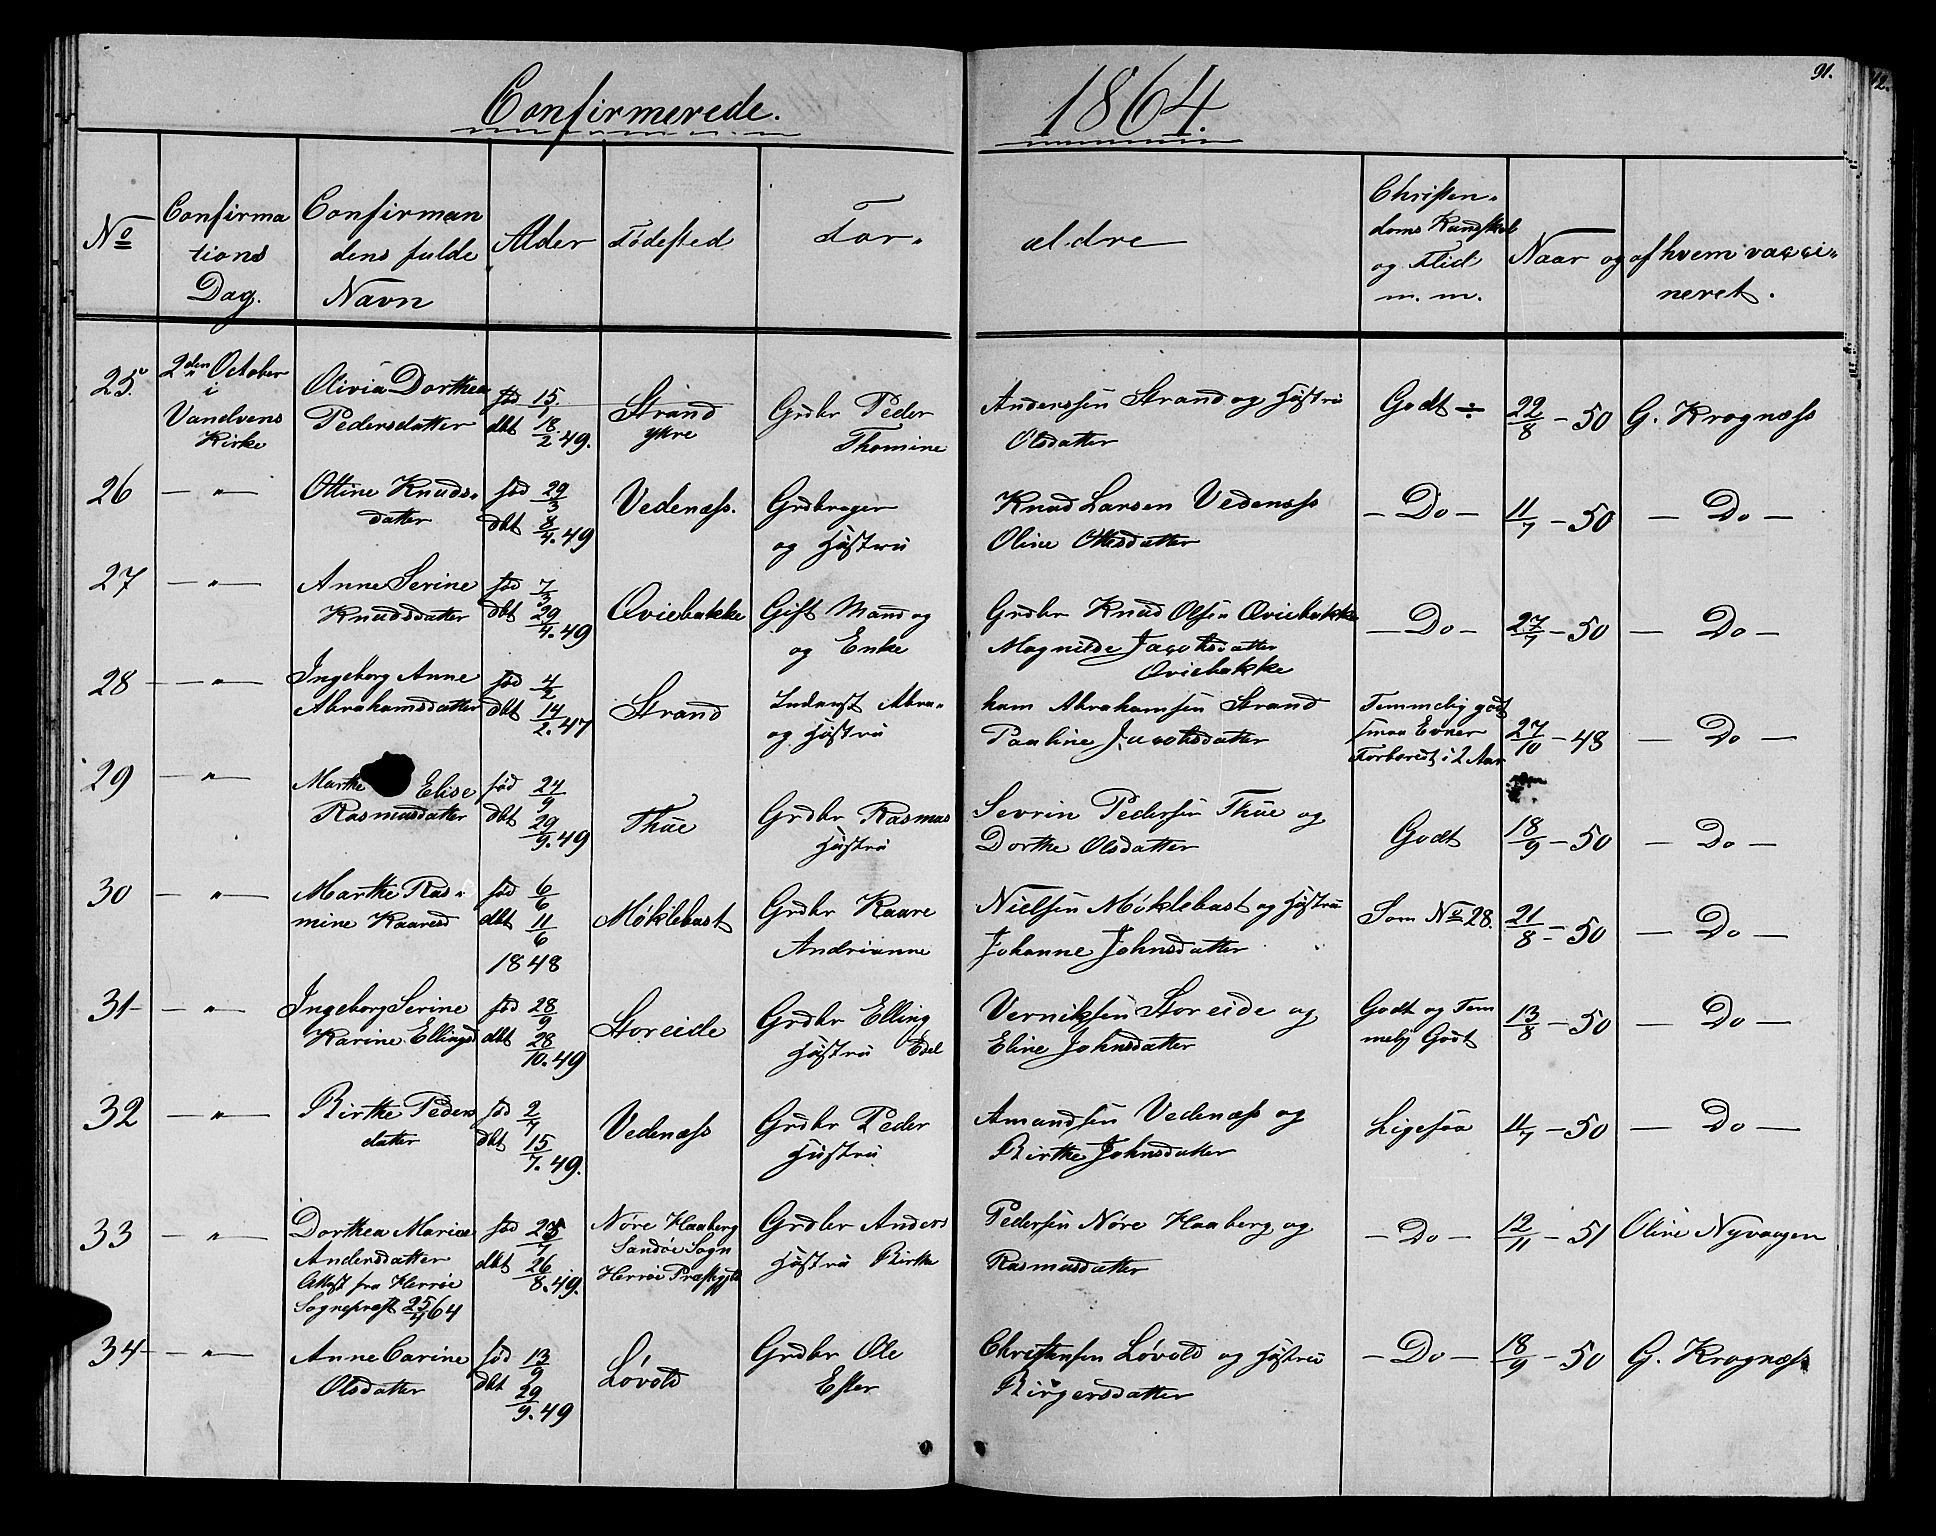 91.
12.
Confirmerede. 1864.
No | Confirmations Dag. | Confirmandens fulde Navn | Alder | Fødested | Forældre | Christendoms Kundskab og Flid m. m. | Naar og af hvem vaccineret.
25. 2den October i Vandelvens Kirke | Olivia Dorthea Pedersdatter | fød 15/1 dbt 18/2 49. | Strand ykre | Grdbr Peder Anderssen Strand og Hustru Thomine Olsdatter | Godt ÷ | 22/8 – 50 | G. Krognæss
26 – " – | Ottine Knudsdatter | fød 29/3 dbt 8/4. 49 | Vedenæss. | Grdbruger Knud Larsen Vedenæss og Hustru Oline Ottesdatter | – Do – | 11/7 – 50 | – Do –
27 – " – | Anne Serine Knudsdatter | fød 7/3 dbt 29/4. 49 | Qviebakke | Gift Mand og Grdbr Knud Olsen Qviebakke og Enke Magnilde Jacobsdatter Qviebakke | – Do – | 27/7 – 50 | – Do –
28 – " – | Ingeborg Anne Abrahamsdatter | fød 4/2 dbt 14/2. 47 | Strand | Inderst Abraham Abrahamsen Strand og Hustru Pauline Jacobsdatter | Temmelig godt smaa Evner Forberedt i 2 Aar | 27/10 – 48 | – Do –
29 – " – | Marthe Elise Rasmusdatter | fød 24/9 dbt 29/9. 49 | Thue | Grdbr Rasmus Sevrin Pedersen Thue og Hustru Dorthe Olsdatter | Godt | 18/9 – 50 | – Do –
30 – " – | Marthe Rasmine Kaaresd | fød 6/6 dbt 11/6 1848 | Møklebust | Grdbr Kaare Nielsen Møklebust og Hustru Andrianne Johanne Johnsdatter | Som No 28. | 21/8 – 50 | – Do –
31 – " – | Ingeborg Serine Karine Ellingsd | fød 28/9 dbt 28/10. 49 | Storeide | Grdbr Elling Verniksen Storeide og Hustru Edel Eline Johnsdatter | Godt og Temmelig Godt | 13/8 – 50 | – Do –
32 – " – | Birthe Pedersdatter | fød 2/7 dbt 15/7. 49. | Vedenæss | Grdbr Peder Amandsen Vedenæss og Hustru Birthe Johnsdatter | Ligesaa | 11/7 – 50 | – Do –
33 – " – | Dorthea Marie Andersdatter Attest fra Herrøe Sognepræst 25/4 64 | fød 25/7 dbt 26/8. 49. | Nøre Haaberg Sandøe Sogn Herrøe Præstgjeld | Grdbr Anders Pedersen Nøre Haaberg og Hustru Birthe Rasmusdatter | – Do – | 12/11 – 51 | Oline Nyvaagen
34 – " – | Anne Carine Olsdatter | fød 13/9 dbt 29/9. 49 | Løvold | Grdbr Ole Christensen Løvold og Hustru Ester Birgersdatter | – Do – | 18/9 – 50 | G. Krognæss